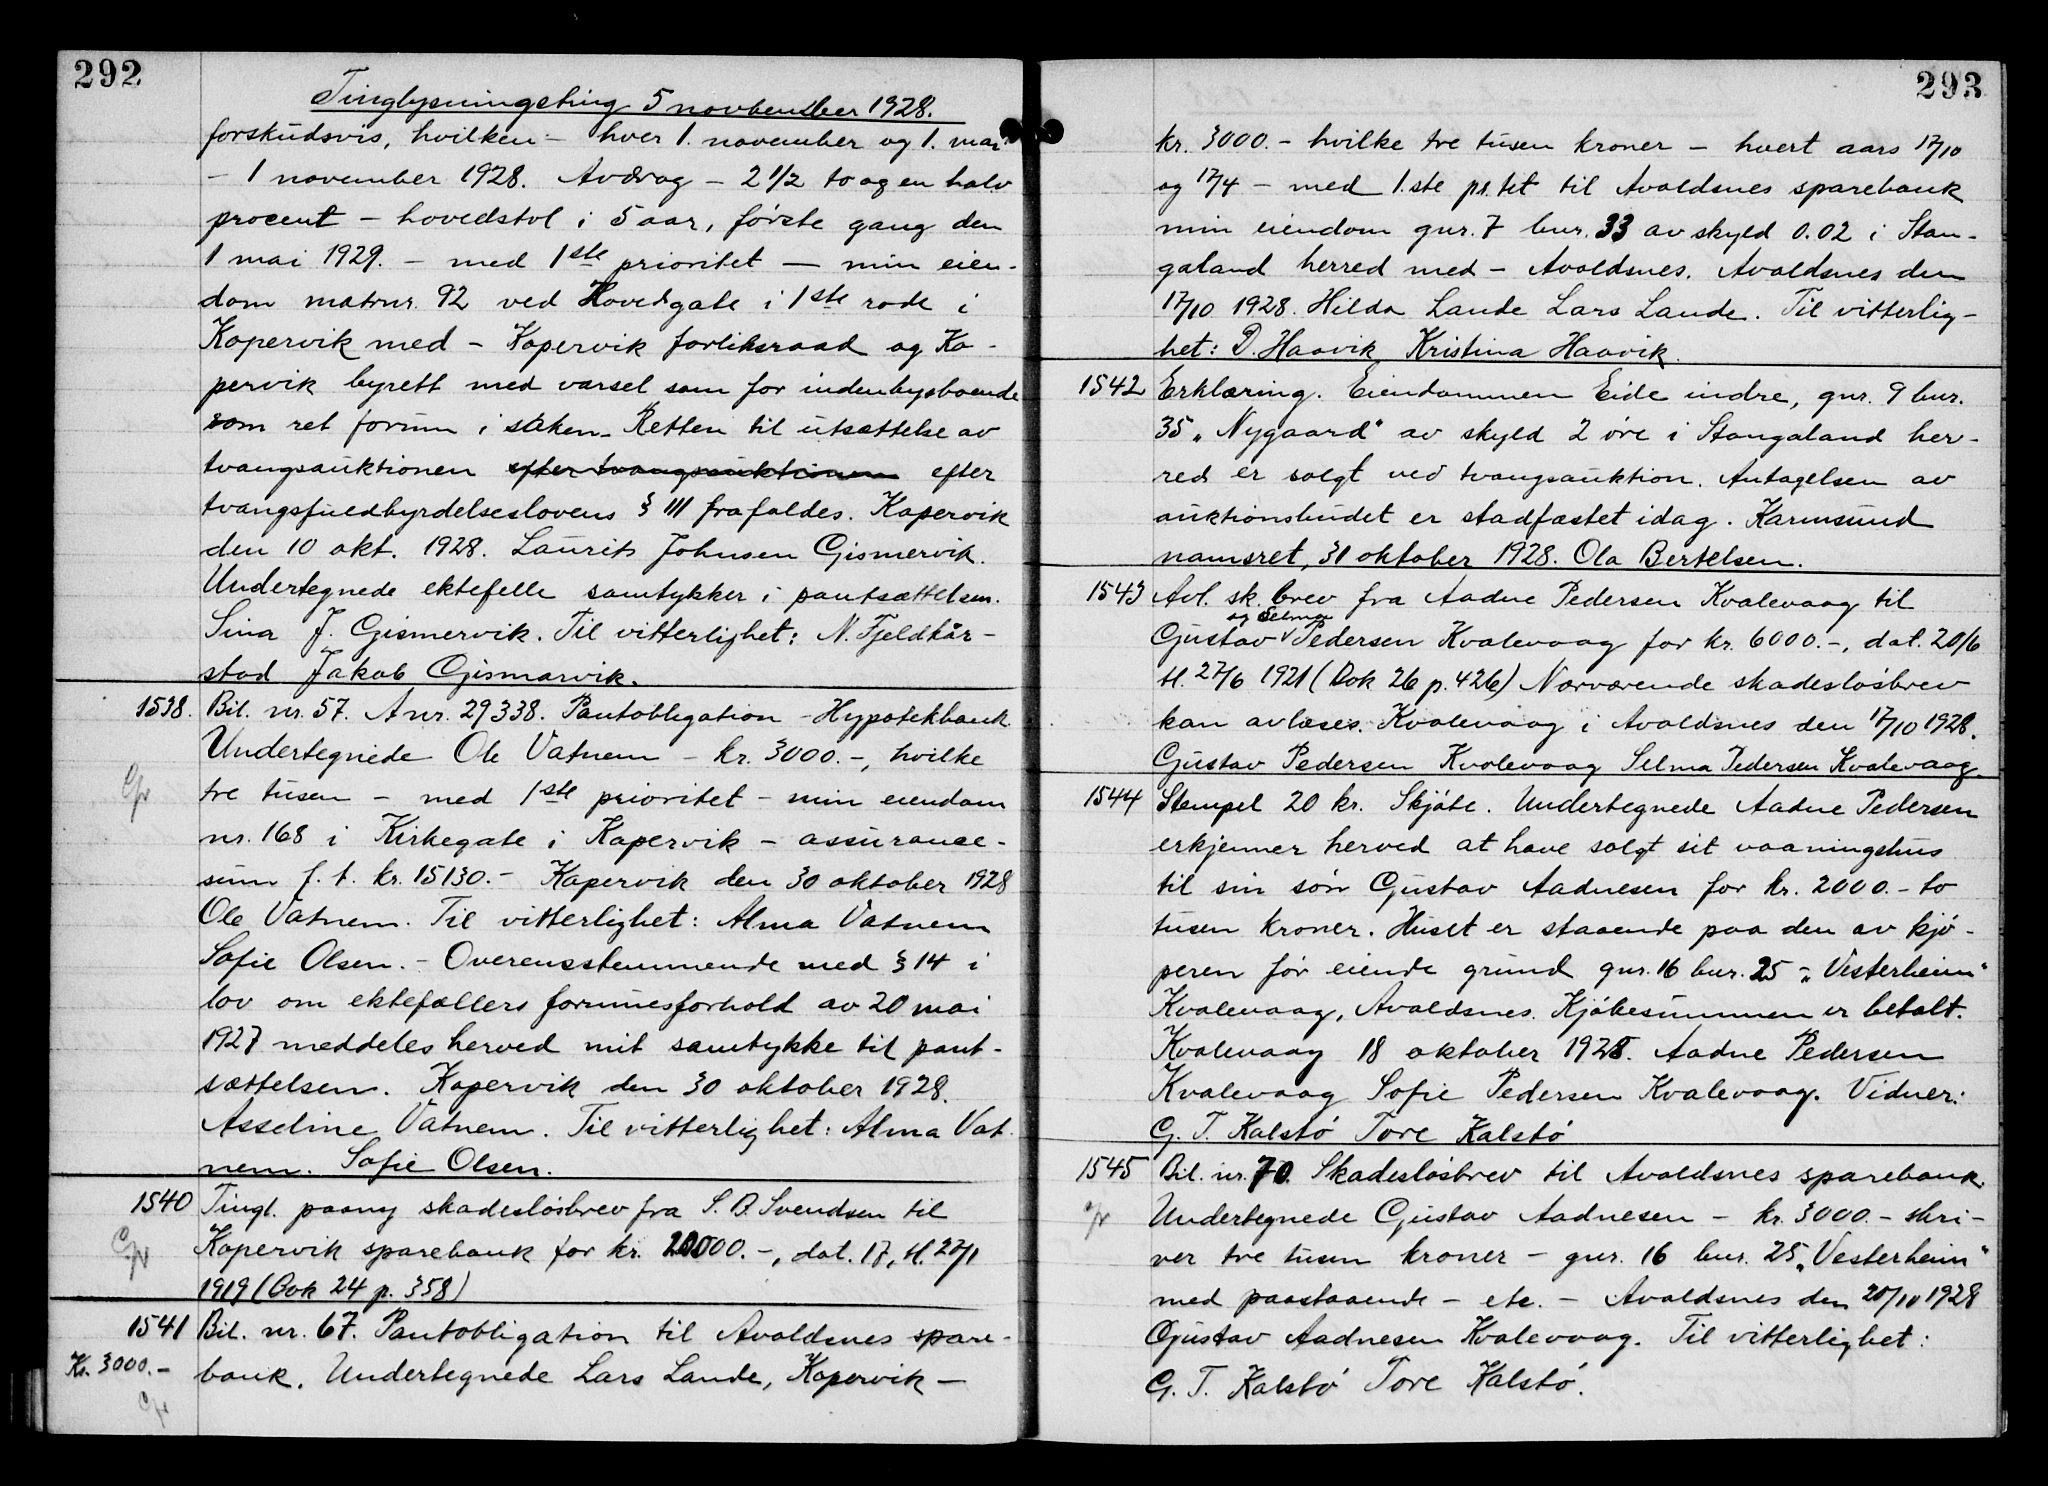 292
Tinglysningsting 5 november 1928.
forskudsvis, hvilken – hver 1. november og 1. mai
– 1 november 1928. Avdrag – 2 1/2 to og en halv
procent – hovedstol i 5 aar, første gang den
1 mai 1929. – med 1ste prioritet – min eien-
dom matrnr. 92 ved Hovedgate i 1ste rode i
Kopervik med – Kopervik forliksraad og Ko-
pervik byrett med varsel som for indenbysboende
som ret forum i saken. Retten til utsættelse av
tvangsauktionen efter tvangsauktionen efter
tvangsfuldbyrdelseslovens § 111 frafaldes. Kopervik
den 10 okt. 1928. Laurits Johnsen Gismervik.
Undertegnede ektefelle samtykker i pantsættelsen.
Sina J. Gismervik. Til vitterlighet: N. Fjeldkår-
stad Jakob Gismarvik.
1538. Bil. nr. 57. A nr. 29338. Pantobligation – Hypotekbank
Undertegnede Ole Vatnem – kr. 3000.–, hvilke
tre tusen – med 1ste prioritet – min eiendom
nr. 168 i Kirkegate i Kopervik – assurance-
sum f. t. kr. 15130.– Kopervik den 30 oktober 1928
Ole Vatnem. Til vitterlighet: Alma Vatnem
Sofie Olsen. – Overensstemmende med § 14 i
lov om ektefællers formuesforhold av 20 mai
1927 meddeles herved mit samtykke til pant-
sættelsen. Kopervik den 30 oktober 1928.
Asseline Vatnem. Til vitterlighet: Alma Vat-
nem. Sofie Olsen.
1540 Tingl. paany skadesløsbrev fra S. B. Svendsen til
Kopervik sparebank for kr. 20000.–, dat. 17, tl. 27/1
1919 (Bok 24 p. 358)
1541 Bil. nr. 67. Pantobligation til Avaldsnes spare-
Kr. 3000.– bank. Undertegnede Lars Lande, Kopervik –
293
kr. 3000.– hvilke tre tusen kroner – hvert aars 17/10
og 17/4 – med 1.ste pr.tet til Avaldsnes sparebank
min eiendom gnr. 7 bnr. 33 av skyld 0.02 i Stan-
galand herred med – Avaldsnes. Avaldsnes den
17/10 1928. Hilda Lande Lars Lande. Til vitterlig-
het: D. Haavik Kristina Haavik.
1542 Erklæring. Eiendommen Eide indre, gnr. 9 bnr.
35 „Nygaard" av skyld 2 øre i Stangaland her-
red er solgt ved tvangsauktion. Antagelsen av
auktionsbudet er stadfæstet idag. Karmsund
namsret, 31 oktober 1928. Ola Bertelsen.
1543 Avl. sk. brev fra Aadne Pedersen Kvalevaag til
og Selma
Gustav Pedersen Kvalevaag for kr. 6000.–, dat. 20/6
tl. 27/6 1921 (Bok 26 p. 426) Nærværende skadesløsbrev
kan avlæses. Kvalevaag i Avaldsnes den 17/10 1928.
Gustav Pedersen Kvalevaag Selma Pedersen Kvalevaag.
1544 Stempel 20 kr. Skjøte. Undertegnede Aadne Pedersen
erkjenner herved at have solgt sit vaaningshus
til sin søn Gustav Aadnesen for kr. 2000.– to
tusen kroner. Huset er staaende paa den av kjø-
peren før eiende grund gnr. 16 bnr. 25 – „Vesterheim"
Kvalevaag, Avaldsnes. Kjøbesummen er betalt.
Kvalevaag 18 oktober 1928. Aadne Pedersen
Kvalevaag Sofie Pedersen Kvalevaag. Vidner:
G. T. Kalstø Tore Kalstø
1545 Bil. nr. 70. Skadesløsbrev til Avaldsnes sparebank.
Undertegnede Gustav Aadnesen – kr. 3000.– skri-
ver tre tusen kroner – gnr. 16 bnr. 25 „Vesterheim"
med paastaaende – etc. – Avaldsnes den 20/10 1928
Gustav Aadnesen Kvalevaag. Til vitterlighet:
G. T. Kalstø Tore Kalstø.